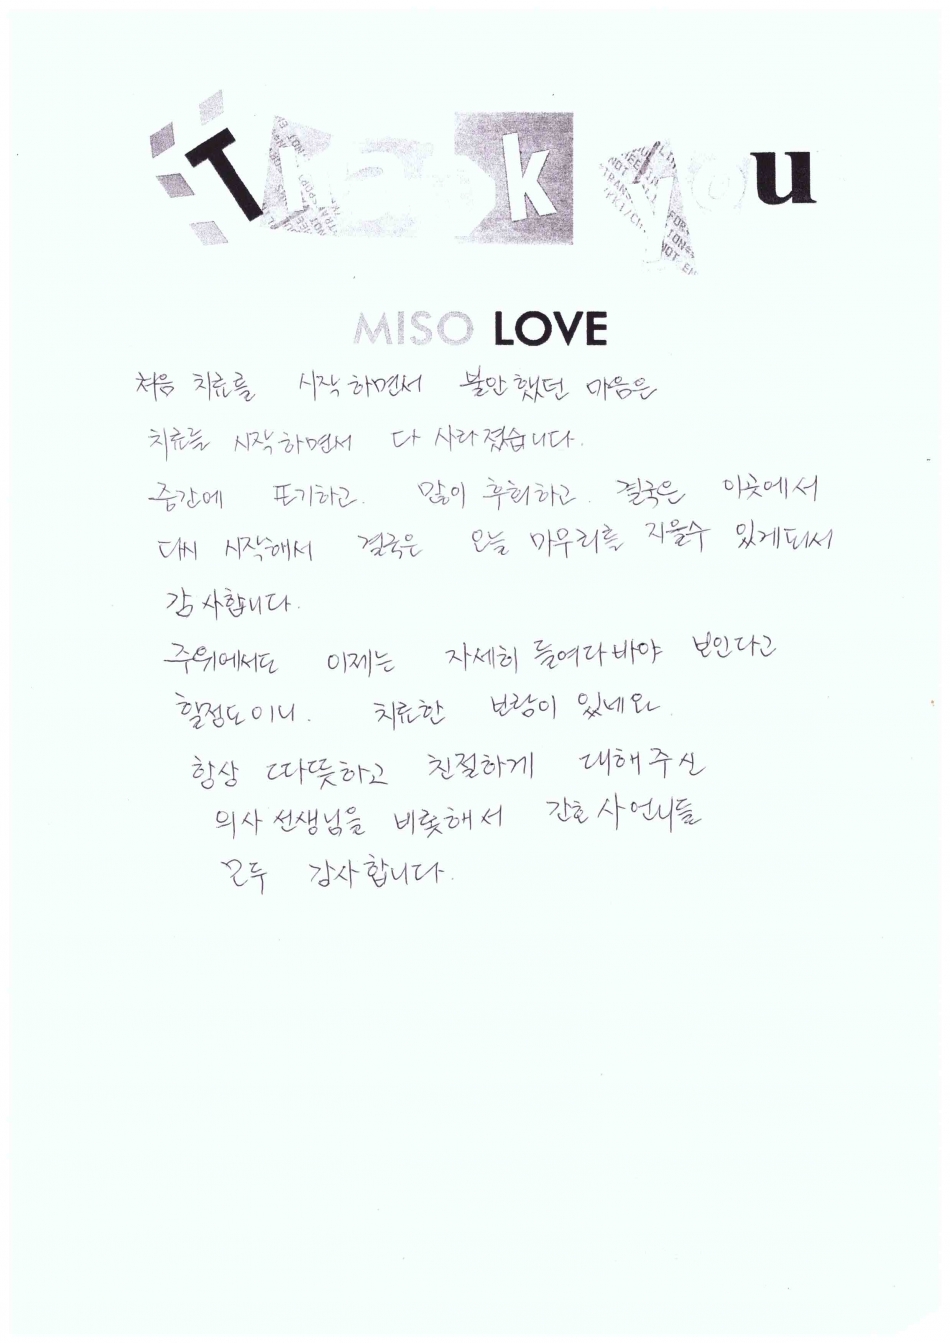 Thank you
MISO LOVE
처음 치료를 시작하면서 불안했던 마음은
치료를 시작하면서 다 사라졌습니다.
중간에 포기하고. 많이 후회하고. 결국은 이곳에서
다시 시작해서 결국은 오늘 마무리를 지을수 있게되서
감사합니다.
주위에서도 이제는 자세히 들여다바야 보인다고
할정도이니. 치료한 보람이 있네요.
항상 따뜻하고 친절하게 대해주신
의사선생님을 비롯해서 간호사언니들
모두 감사합니다.